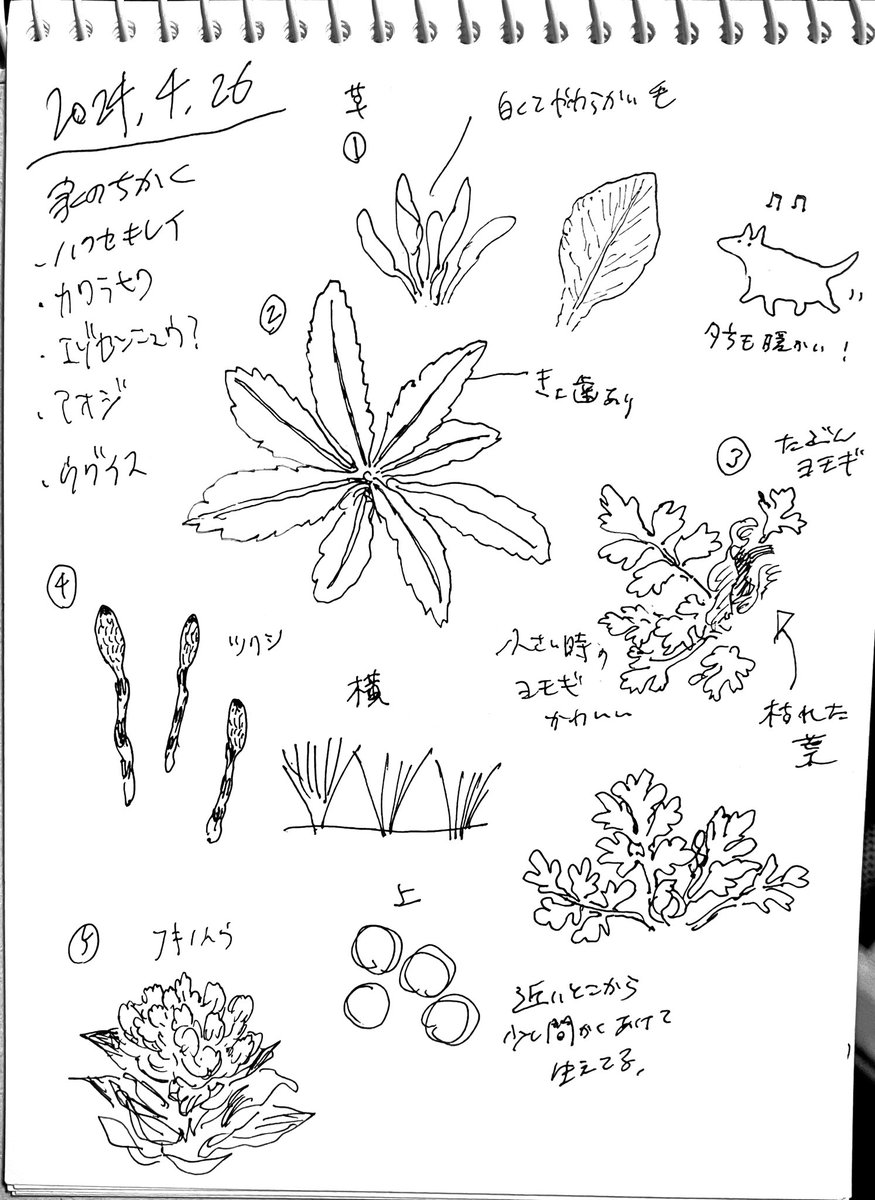 2024.4.26
家のちかく
・ハクセキレイ
・カワラヒワ
・エゾセンニュウ?
・アオジ
・ウグイス
草
①
白くてやわらかい毛
♫♫
夕方も暖かい!
②
きょ歯あり
③
たぶん
ヨモギ
小さい時の
ヨモギ
かわいい
枯れた
葉
④
ツクシ
横
上
近いとこから
少し間かくあけて
生えてる。
⑤
フキノトウ